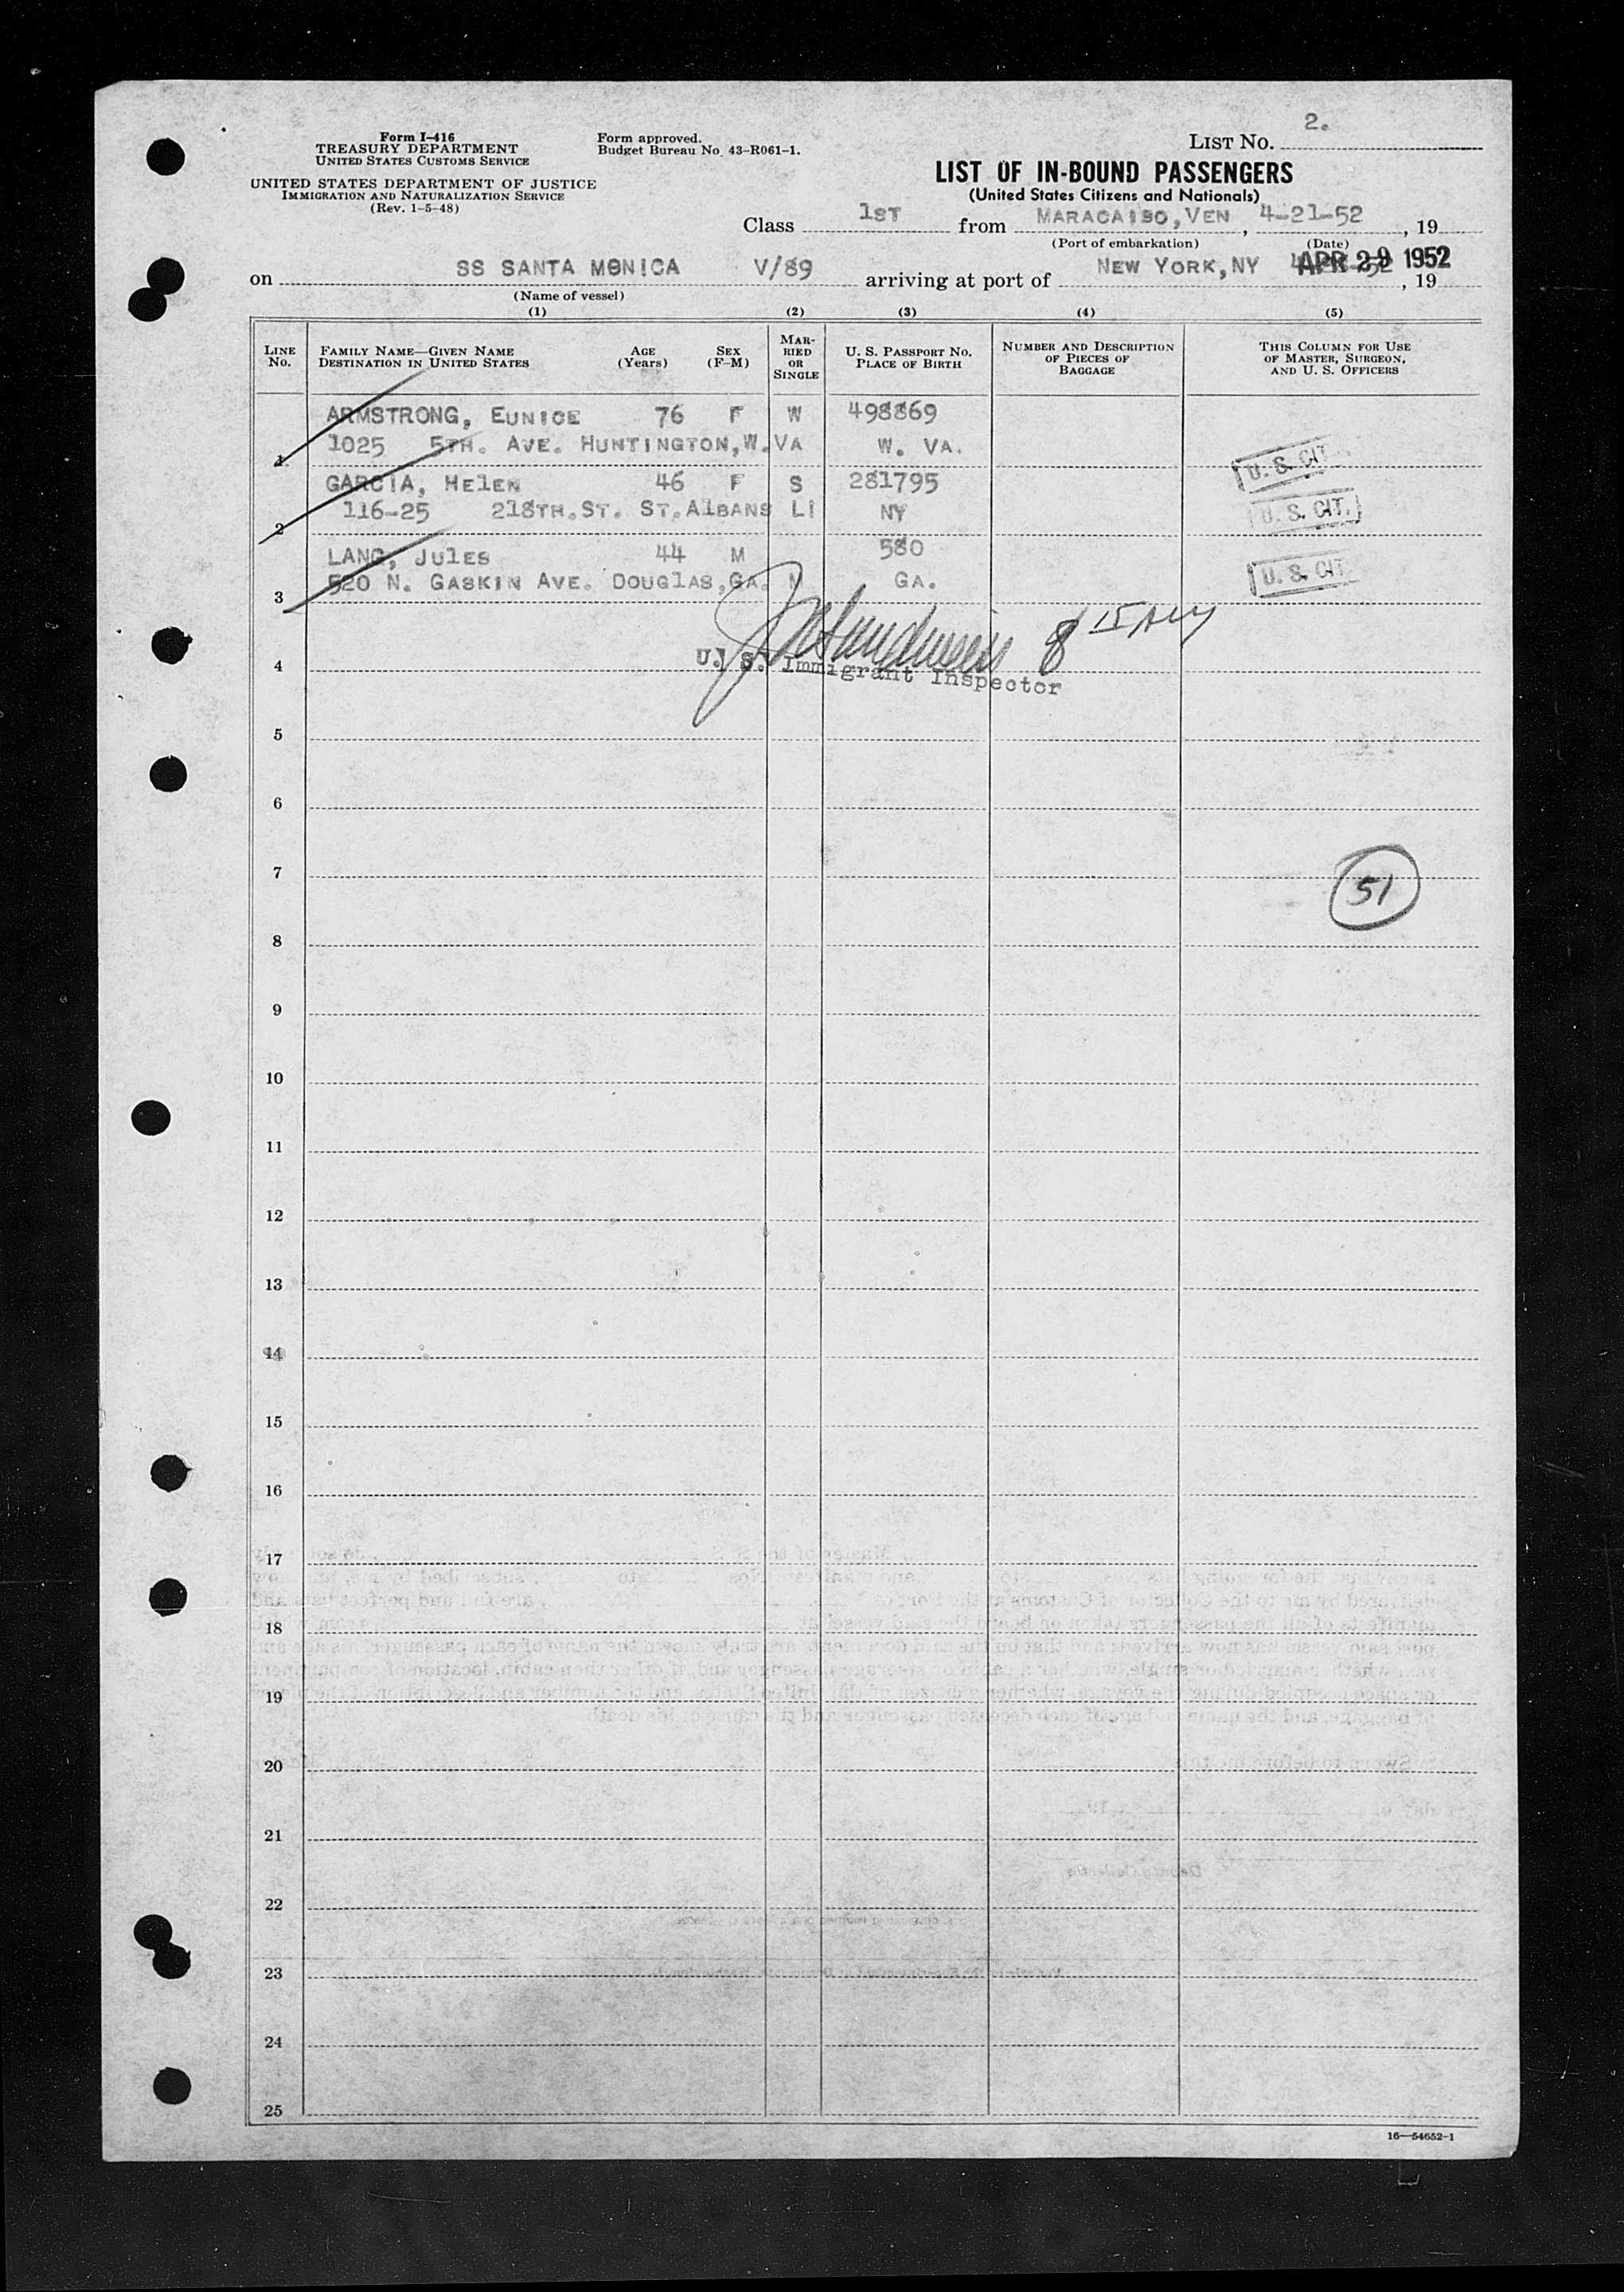 Form I-416
TREASURY DEPARTMENT
UNITED STATES CUSTOMS SERVICE
UNITED STATES DEPARTMENT OF JUSTICE
IMMIGRATION AND NATURALIZATION SERVICE
(Rev. 1-5-48)
Form approved.
Budget Bureau No. 43-R061-1.
LIST No. 2.
LIST OF IN-BOUND PASSENGERS
(United States Citizens and Nationals)
Class 1ST from MARACAIBO, VEN , 4-21-52 , 19
(Port of embarkation) (Date)
on SS SANTA MONICA V/89 arriving at port of NEW YORK, NY APR 29 1952 , 19
(Name of vessel)
(1) (2) (3) (4) (5)
LINE No. FAMILY NAME—GIVEN NAME DESTINATION IN UNITED STATES AGE (Years) SEX (F-M) MARRIED OR SINGLE U. S. PASSPORT No. PLACE OF BIRTH NUMBER AND DESCRIPTION OF PIECES OF BAGGAGE THIS COLUMN FOR USE OF MASTER, SURGEON, AND U. S. OFFICERS
ARMSTRONG, EUNICE 76 F W 498869
1 1025 5TH. AVE. HUNTINGTON, W.VA W. VA. U. S. CIT.
GARCIA, HELEN 46 F S 281795
2 116-25 218TH. ST. ST. ALBANS LI NY U. S. CIT.
LANG, JULES 44 M 580
3 520 N. GASKIN AVE. DOUGLAS, GA. M GA. U. S. CIT
8 15 AM
4 U. S. Immigrant Inspector
5
6
7 51
8
9
10
11
12
13
14
15
16
17
18
19
20
21
22
23
24
25
16—54652-1